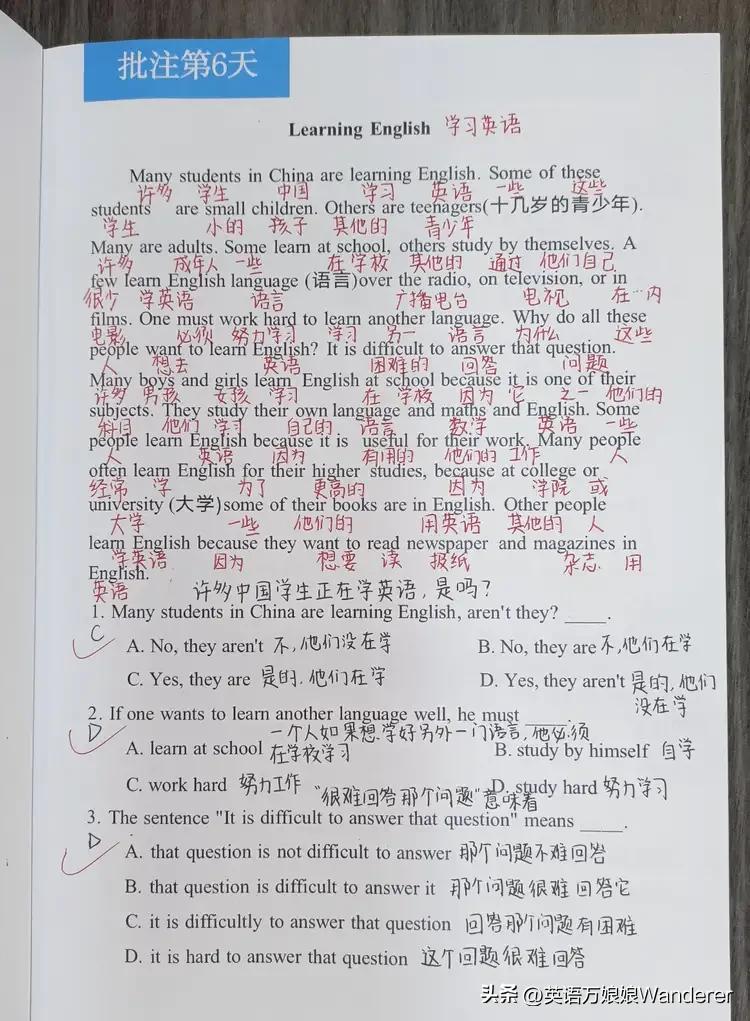 批注第6天
Learning English 学习英语
Many students in China are learning English. Some of these
许多 学生 中国 学习 英语 一些 这些
students are small children. Others are teenagers(十几岁的青少年).
学生 小的 孩子 其他的 青少年
Many are adults. Some learn at school, others study by themselves. A
许多 成年人 一些 在学校 其他的 通过 他们自己
few learn English language (语言)over the radio, on television, or in
很少 学英语 语言 广播电台 电视 在…内
films. One must work hard to learn another language. Why do all these
电影 必须 努力学习 学习 另一 语言 为什么 这些
people want to learn English? It is difficult to answer that question.
人 想去 英语 困难的 回答 问题
Many boys and girls learn English at school because it is one of their
许多 男孩 女孩 学习 在 学校 因为 它 之一 他们的
subjects. They study their own language and maths and English. Some
科目 他们 学习 自己的 语言 数学 英语 一些
people learn English because it is useful for their work. Many people
人 英语 因为 有用的 他们的 工作 人
often learn English for their higher studies, because at college or
经常 学 为了 更高的 因为 学院 或
university (大学)some of their books are in English. Other people
大学 一些 他们的 用英语 其他的 人
learn English because they want to read newspaper and magazines in
学英语 因为 想要 读 报纸 杂志 用
English.
英语 许多中国学生正在学英语,是吗?
1. Many students in China are learning English, aren't they? ____.
C
A. No, they aren't 不,他们没在学 B. No, they are 不,他们在学
C. Yes, they are 是的,他们在学 D. Yes, they aren't 是的,他们
没在学
2. If one wants to learn another language well, he must ____.
D 一个人如果想学好另外一门语言,他必须
A. learn at school 在学校学习 B. study by himself 自学
C. work hard 努力工作 D. study hard 努力学习
"很难回答那个问题"意味着
3. The sentence "It is difficult to answer that question" means ____.
D
A. that question is not difficult to answer 那个问题不难回答
B. that question is difficult to answer it 那个问题很难回答它
C. it is difficultly to answer that question 回答那个问题有困难
D. it is hard to answer that question 这个问题很难回答
头条 @英语万娘娘Wanderer